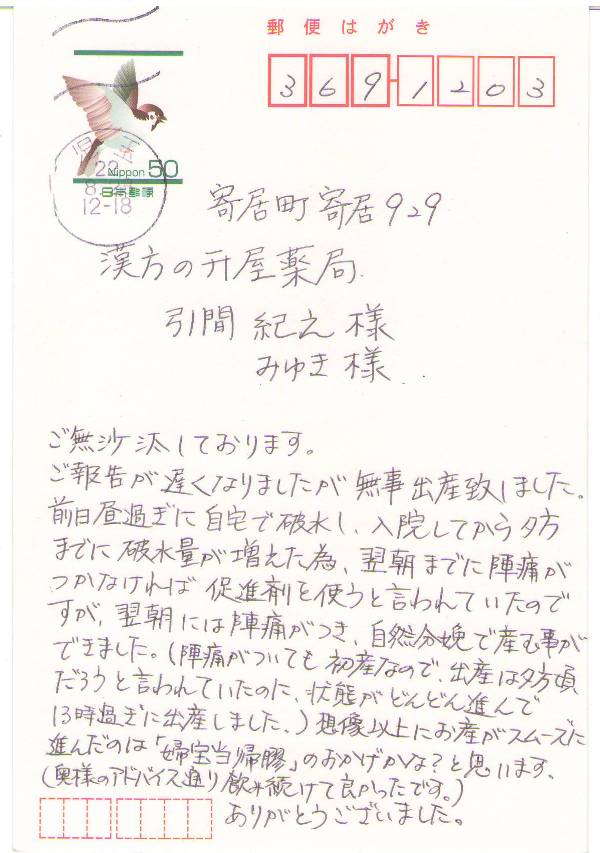 郵便はがき
369-1203
Nippon 50
日本郵便
児玉
22
8
12-18
寄居町寄居929
漢方の升屋薬局
引間 紀之 様
みゆき 様
ご無沙汰しております。
ご報告が遅くなりましたが無事出産致しました。
前日昼過ぎに自宅で破水し、入院してから夕方
までに破水量が増えた為、翌朝までに陣痛が
つかなければ促進剤を使うと言われていたので
すが、翌朝には陣痛がつき、自然分娩で産む事が
できました。(陣痛がついても初産なので、出産は夕方頃
だろうと言われていたのに、状態がどんどん進んで
13時過ぎに出産しました。)想像以上にお産がスムーズに
進んだのは「婦宝当帰膠」のおかげかな?と思います。
(奥様のアドバイス通り飲み続けて良かったです。)
ありがとうございました。